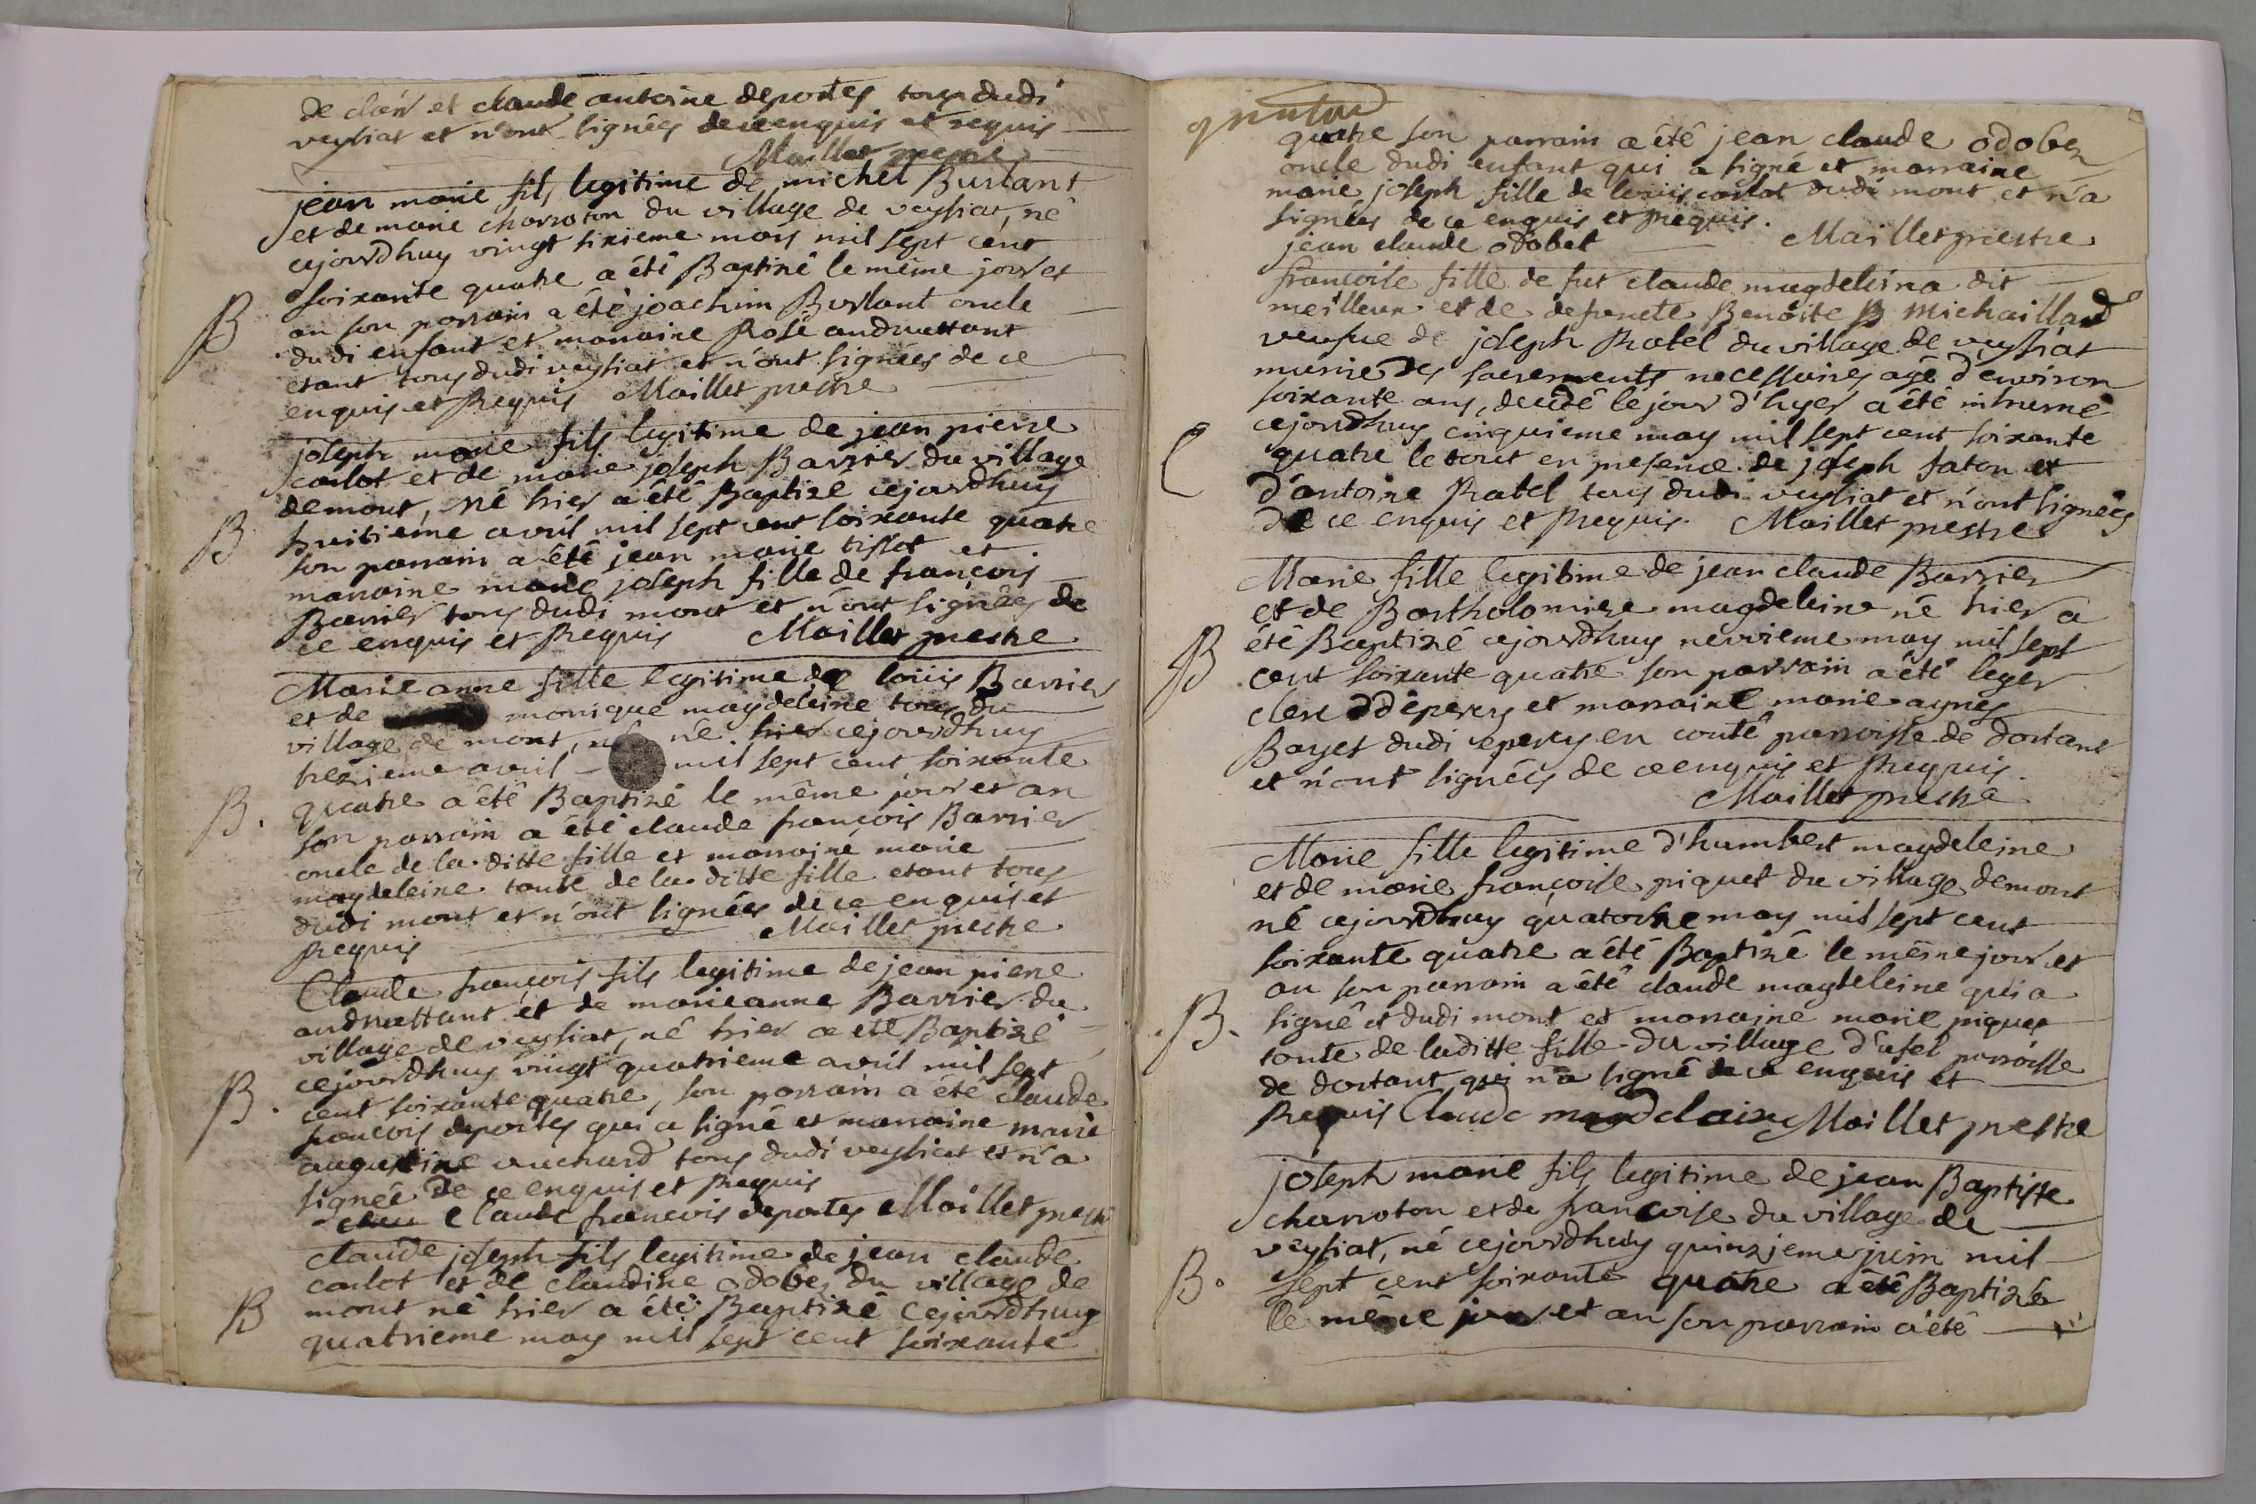 de et claude antoine deportes tous dudi
veysiat et n'ont signées de ce enquis et requis
Maillet prestre
jean marie fils legitime de michel Burlant
et de marie charroton du village de veysiat, né
cejourdhuy vingt sixieme mars mil sept cent
soixante quatre a été Baptizé le même jour et
B
an son parrain a été joachim Burlant oncle
dudi enfant et marraine Rose andruettant
etant tous dudi veysiat et n'ont signées de ce
enquis et Requis Maillet prestre
joseph marie fils legitime de jean pierre
carlot et de marie joseph Barrier du village
de mont, né hier a été Baptizé cejourdhuy
B
huitieme avril mil sept cent soixante quatre
son parrain a été jean marie tissot et
marraine marie joseph fille de françois
Barrier tous dudi mont et n'ont signées de
ce enquis et Requis Maillet prestre
Marie anne fille legitime de loüis Barrier
et de monique magdeleine tous du
village de mont, né né hier cejourdhuy
trezieme avril mil sept cent soixante
B.
quatre a été Baptizé le même jour et an
son parrain a été claude françois Barrier
oncle de la ditte fille et marraine marie
magdeleine tante de la ditte fille etant tous
dudi mont et n'ont signées de ce enquis et
Requis Maillet prestre
Claude françois fils legitime de jean pierre
andruettant et de marieanne Barrier du
village de veysiat, né hier a été Baptizé
cejourdhuy vingt quatrieme avril mil sept
B.
cent soixante quatre, son parrain a été claude
françois deportes qui a signé et marraine marie
augustine vuchard tous dudi veysiat et n'a
signée de ce enquis et Requis
Claude francois deportes Maillet prestre
claude joseph fils legitime de jean claude
carlot et de claudine odobez du village de
B
mont né hier a été Baptizé cejourdhuy
quatrieme may mil sept cent soixante
quatre son parrain a été jean claude odobez
oncle dudi enfant qui a signé et marraine
marie joseph fille de loüis carlot dudi mont et n'a
signées de ce enquis et Requis.
jean claude odobet Maillet prestre
françoise fille de fut claude magdeleina dit
meilleur et de defuncte Benoite B Michaillard
veufue de joseph Ratel du village de veysiat
munie des sacrements necessaires agé d'environ
soixante ans, decedé le jour d'hyer a été inhumé
cejourdhuy cinquieme may mil sept cent soixante
C
quatre le tout en presence de joseph faton et
d'antoine Ratel tous dudi veysiat et n'ont signées
de ce enquis et Requis. Maillet prestre
Marie fille legitime de jean claude Barrier
et de Bartholomieze magdeleine né hier a
B
été Baptizé cejourdhuy neuvieme may mil sept
cent soixante quatre son parrain a été leger
clerc d'epercy et marraine marie agnes
Bayet dudi epercy en conté parroisse de dortant
et n'ont signées de ce enquis et Requis.
Maillet prestre
Marie fille legitime d'humbert magdeleine
et de marie françoise piquet du village de mont
né cejourdhuy quatorze may mil sept cent
soixante quatre a été Baptizé le même jour et
an son parrain a été claude magdeleine qui a
B.
signé et dudi mont et marraine marie piquet
tante de laditte fille du village d'usel parroisse
de dortant qui n'a signé de ce enquis et
Requis Claude magdelaine Maillet prestre
joseph marie fils legitime de jean Baptiste
charroton et de françoise du village de
veysiat, né cejourdhuy quinzieme juin mil
B.
sept cent soixante quatre a été Baptizé
le même jour et an son parrain a été